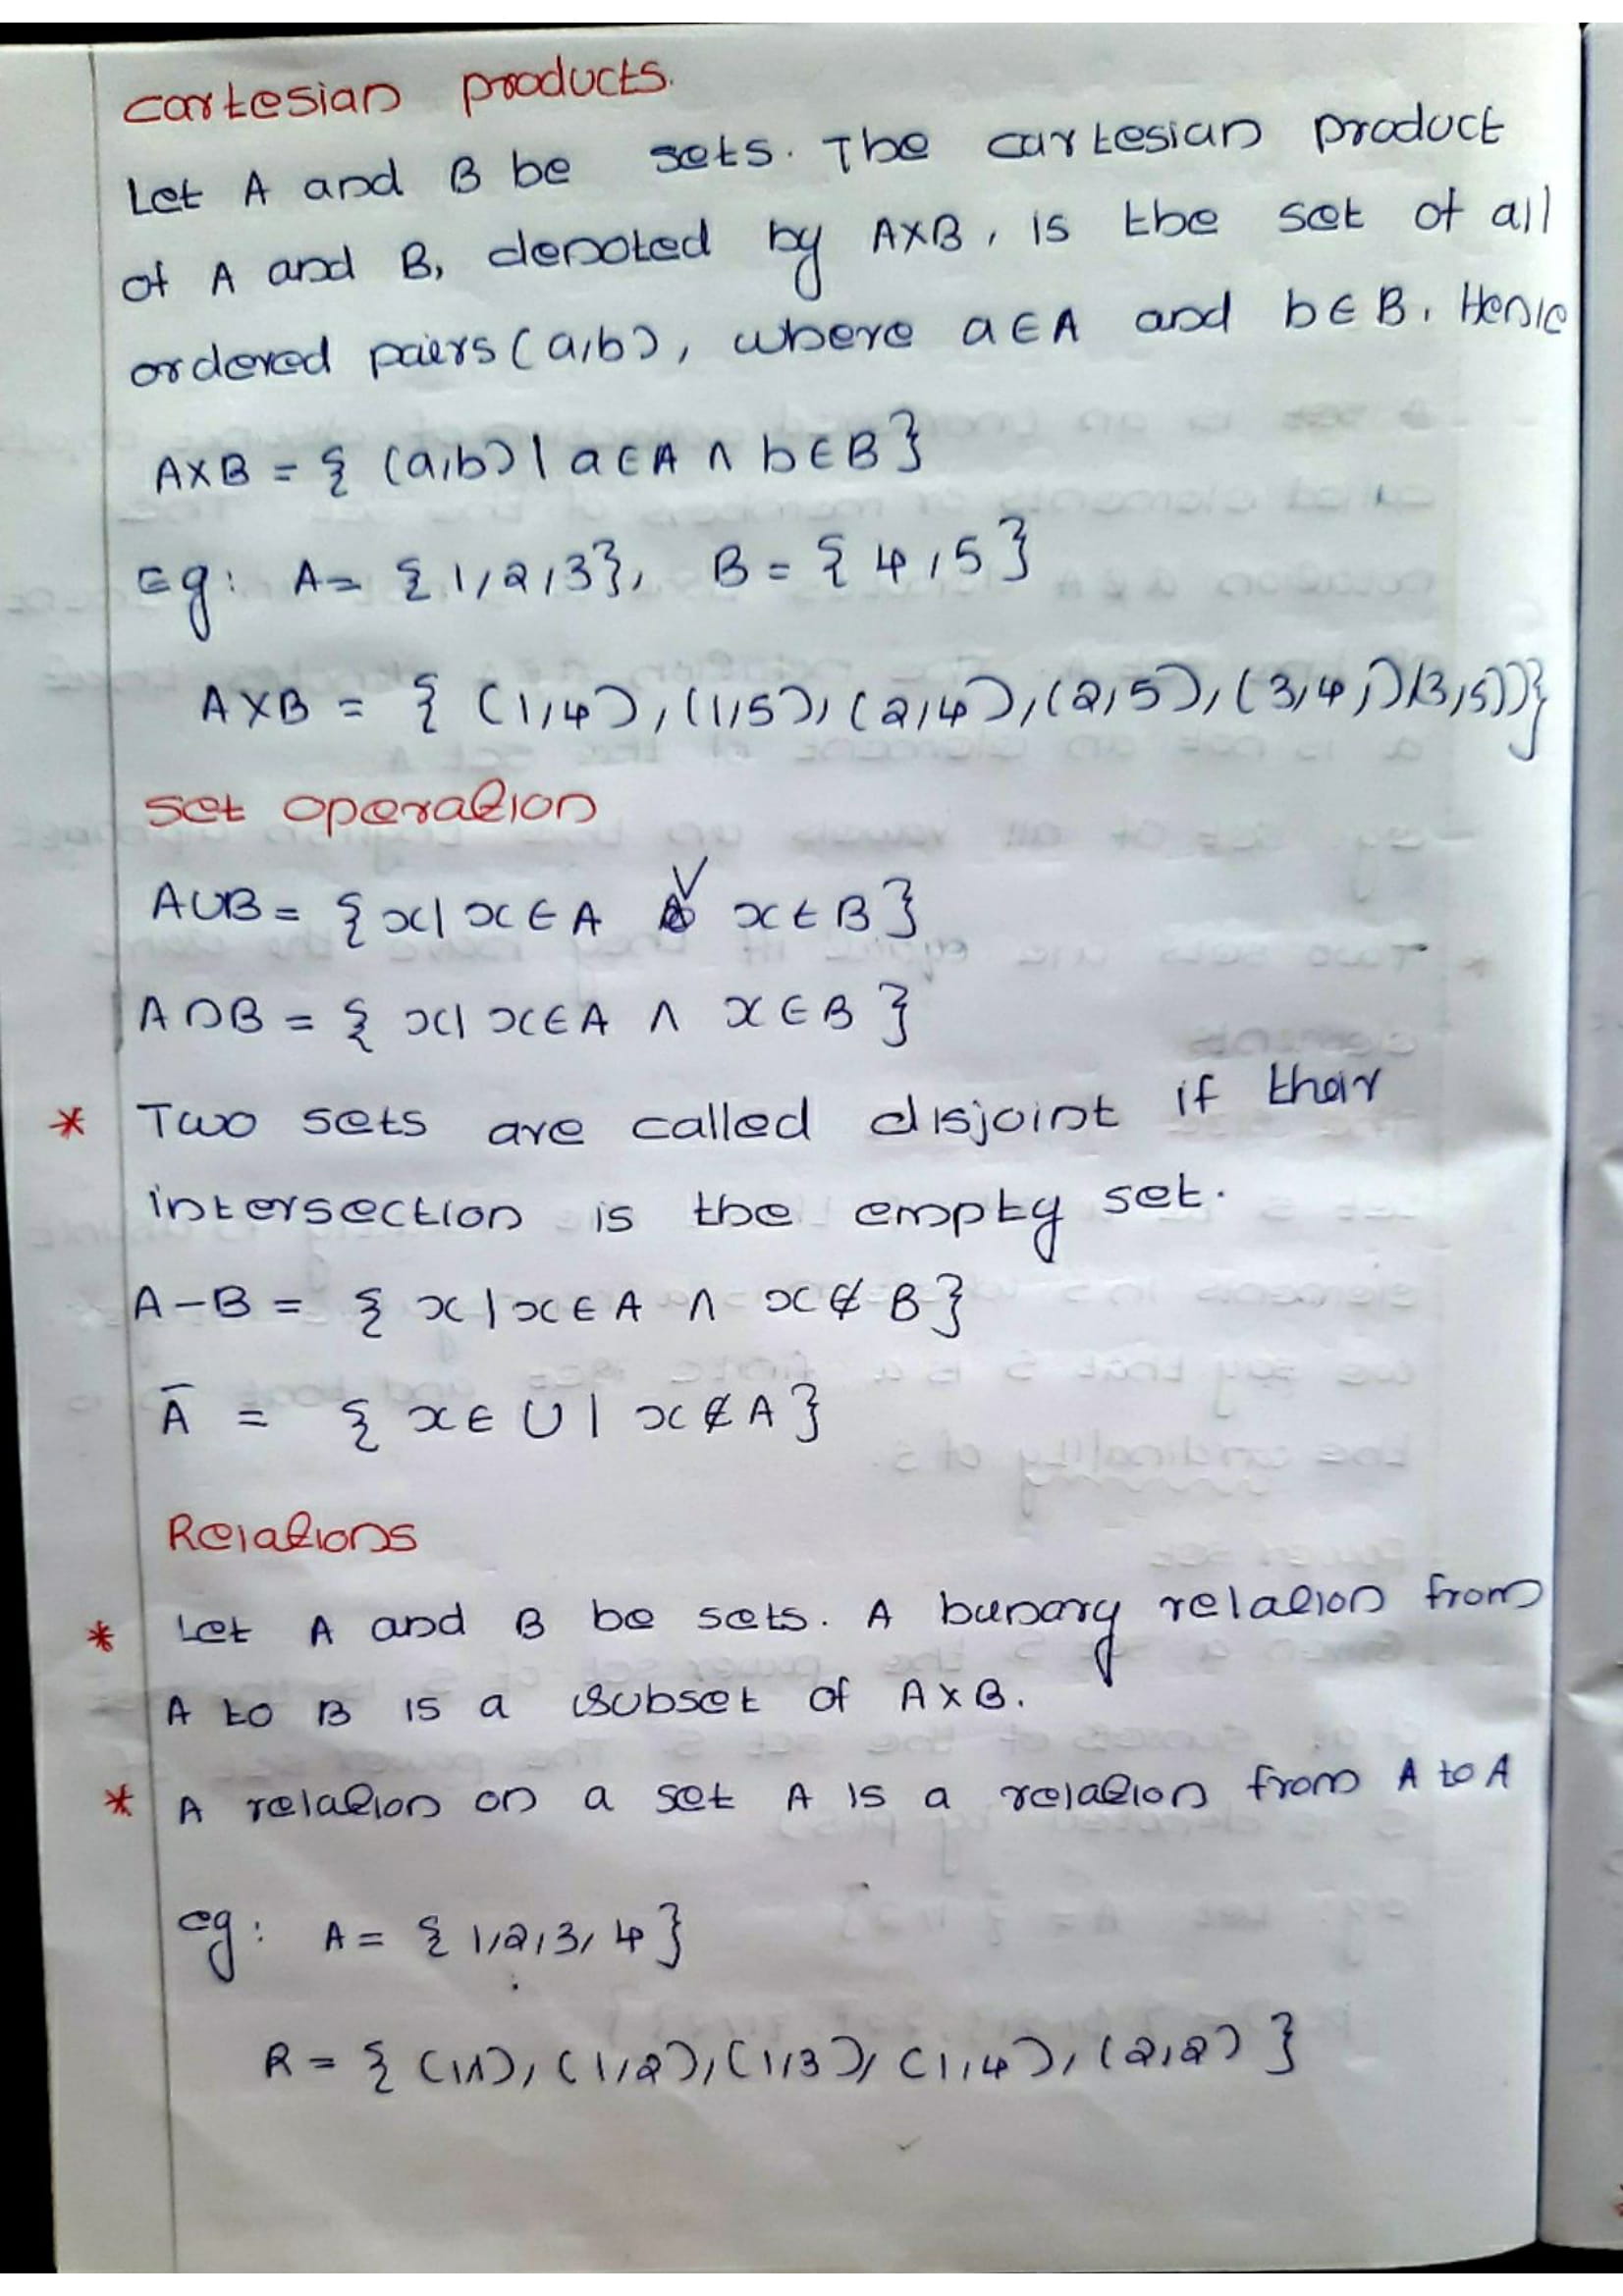 cartesian products.
Let A and B be sets. The cartesian product
of A and B, denoted by A×B, is the set of all
ordered pairs (a,b), where a∈A and b∈B. Hence
A×B = { (a,b) | a∈A ∧ b∈B }
Eg: A= {1,2,3}, B = {4,5}
A×B = { (1,4), (1,5), (2,4), (2,5), (3,4,)(3,5))}
set operation
A∪B = {x| x∈A ∨ x∈B}
A∩B = { x| x∈A ∧ x∈B }
* Two sets are called disjoint if their
intersection is the empty set.
A-B = { x | x∈A ∧ x∉B}
Ā = { x∈U | x∉A}
Relations
* Let A and B be sets. A binary relation from
A to B is a subset of A×B.
* A relation on a set A is a relation from A to A
eg: A = {1,2,3,4}
R = { (1,1), (1,2), (1,3), (1,4), (2,2) }